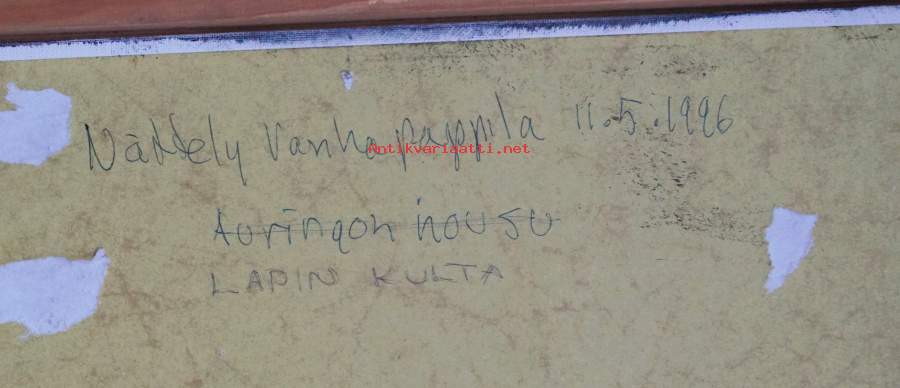 Näyttely Vanhapappila 11.5.1996
Antikvariaatti.net
Auringon nousu
LAPIN KULTA